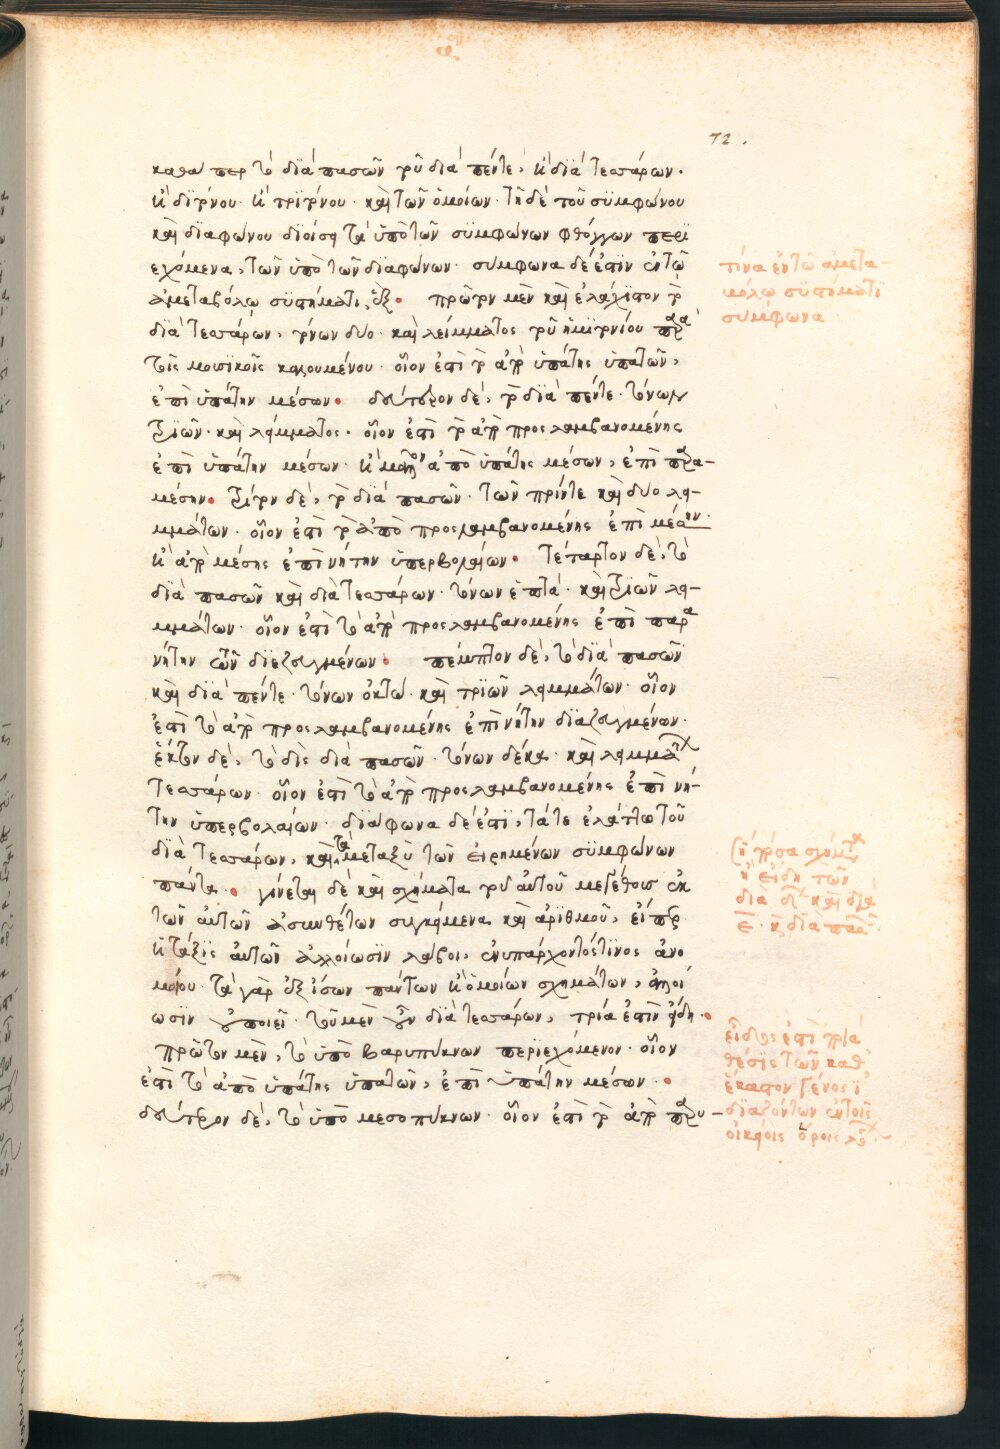 72.
καθάπερ τὸ διὰ πασῶν τοῦ διὰ πέντε, κὶ διὰ τεσσάρων.
κὶ διτόνου κὶ τριτόνου καὶ τῶν ὁμοίων τῇ δὲ τοῦ συμφώνου
καὶ διαφώνου διοίσει τὰ ὑπὸ τῶν συμφώνων φθόγγων περι
εχόμενα, τῶν ὑπὸ τῶν διαφώνων. σύμφωνα δέ ἐστιν ἐν τῷ
ἀμεταβόλῳ συστήματι, ἕξ. πρῶτον μὲν καὶ ἐλάχιστον τὸ
διὰ τεσσάρων, τόνων δύο καὶ λείμματος τοῦ ἡμιτονίου παρὰ
τοῖς μουσικοῖς καλουμένου. οἷον ἐστὶ τὸ ἀπὸ ὑπάτης ὑπατῶν,
ἐπὶ ὑπάτην μέσων. δεύτερον δέ, τὸ διὰ πέντε. τόνων
τριῶν καὶ λήμματος. οἷον ἐστὶ τὸ ἀπὸ προσλαμβανομένης
ἐπὶ ὑπάτην μέσων. κὶ ἀπὸ ὑπάτης μέσων, ἐπὶ παρα-
μέσην. τρίτον δέ, τὸ διὰ πασῶν. τῶν πέντε καὶ δύο λη-
μμάτων. οἷον ἐστὶ τὸ ἀπὸ προσλαμβανομένης ἐπὶ μέσην.
κὶ ἀπὸ μέσης ἐπὶ νήτην ὑπερβολαίων. τέταρτον δέ, τὸ
διὰ πασῶν καὶ διὰ τεσσάρων. τόνων ἑπτά. καὶ τριῶν λη-
μμάτων. οἷον ἐστὶ τὸ ἀπὸ προσλαμβανομένης ἐπὶ παρα
νήτην τῶν διεζευγμένων. πέμπτον δέ, τὸ διὰ πασῶν
καὶ διὰ πέντε. τόνων ὀκτώ. καὶ τριῶν λημμάτων. οἷον
ἐστὶ τὸ ἀπὸ προσλαμβανομένης ἐπὶ νήτην διαζευγμένων.
ἕκτον δέ, τὸ δὶς διὰ πασῶν. τόνων δέκα. καὶ λημμάτων
τεσσάρων. οἷον ἐστὶ τὸ ἀπὸ προσλαμβανομένης ἐπὶ νή-
την ὑπερβολαίων. διάφωνα δέ ἐστι, τά τε ἐλάττω τοῦ
διὰ τεσσάρων, καὶ τὰ μεταξὺ τῶν εἰρημένων συμφώνων
πάντα. γίνεται δὲ καὶ σχήματα τοῦ αὐτοῦ μεγέθους ἐκ
τῶν αὐτῶν ἀσυνθέτων συγκείμενα καὶ ἀριθμοῦ, εἴπερ
κὶ τάξις αὐτῶν ἀλλοίωσιν λάβοι, ἐνυπάρχοντός τινος ἀνο
μοίου. τὰ γὰρ ἐξ ἴσων πάντων κὶ ὁμοίων σχημάτων, ἀλλοί
ωσιν οὐ ποιεῖ. τοῦ μὲν οὖν διὰ τεσσάρων, τρία ἐστὶν εἴδη.
πρῶτον μὲν, τὸ ὑπὸ βαρυπύκνων περιεχόμενον. οἷον
ἐστὶ τὸ ἀπὸ ὑπάτης ὑπατῶν, ἐπὶ ὑπάτην μέσων.
δεύτερον δέ, τὸ ὑπὸ μεσοπύκνων. οἷον ἐστὶ τὸ ἀπὸ παρυ-
τίνα ἐν τῷ ἀμετα-
βόλῳ συστήματι
σύμφωνα
πόσα σχήματα
κὶ εἴδη τῶν
διὰ δ καὶ διὰ
ε. κ διὰ πασῶν
εἶδός ἐστι ποιά
θέσις τῶν καθ
ἕκαστον γένος ἰ
διαζόντων ἐν τοῖς
οἰκείοις ὅροις